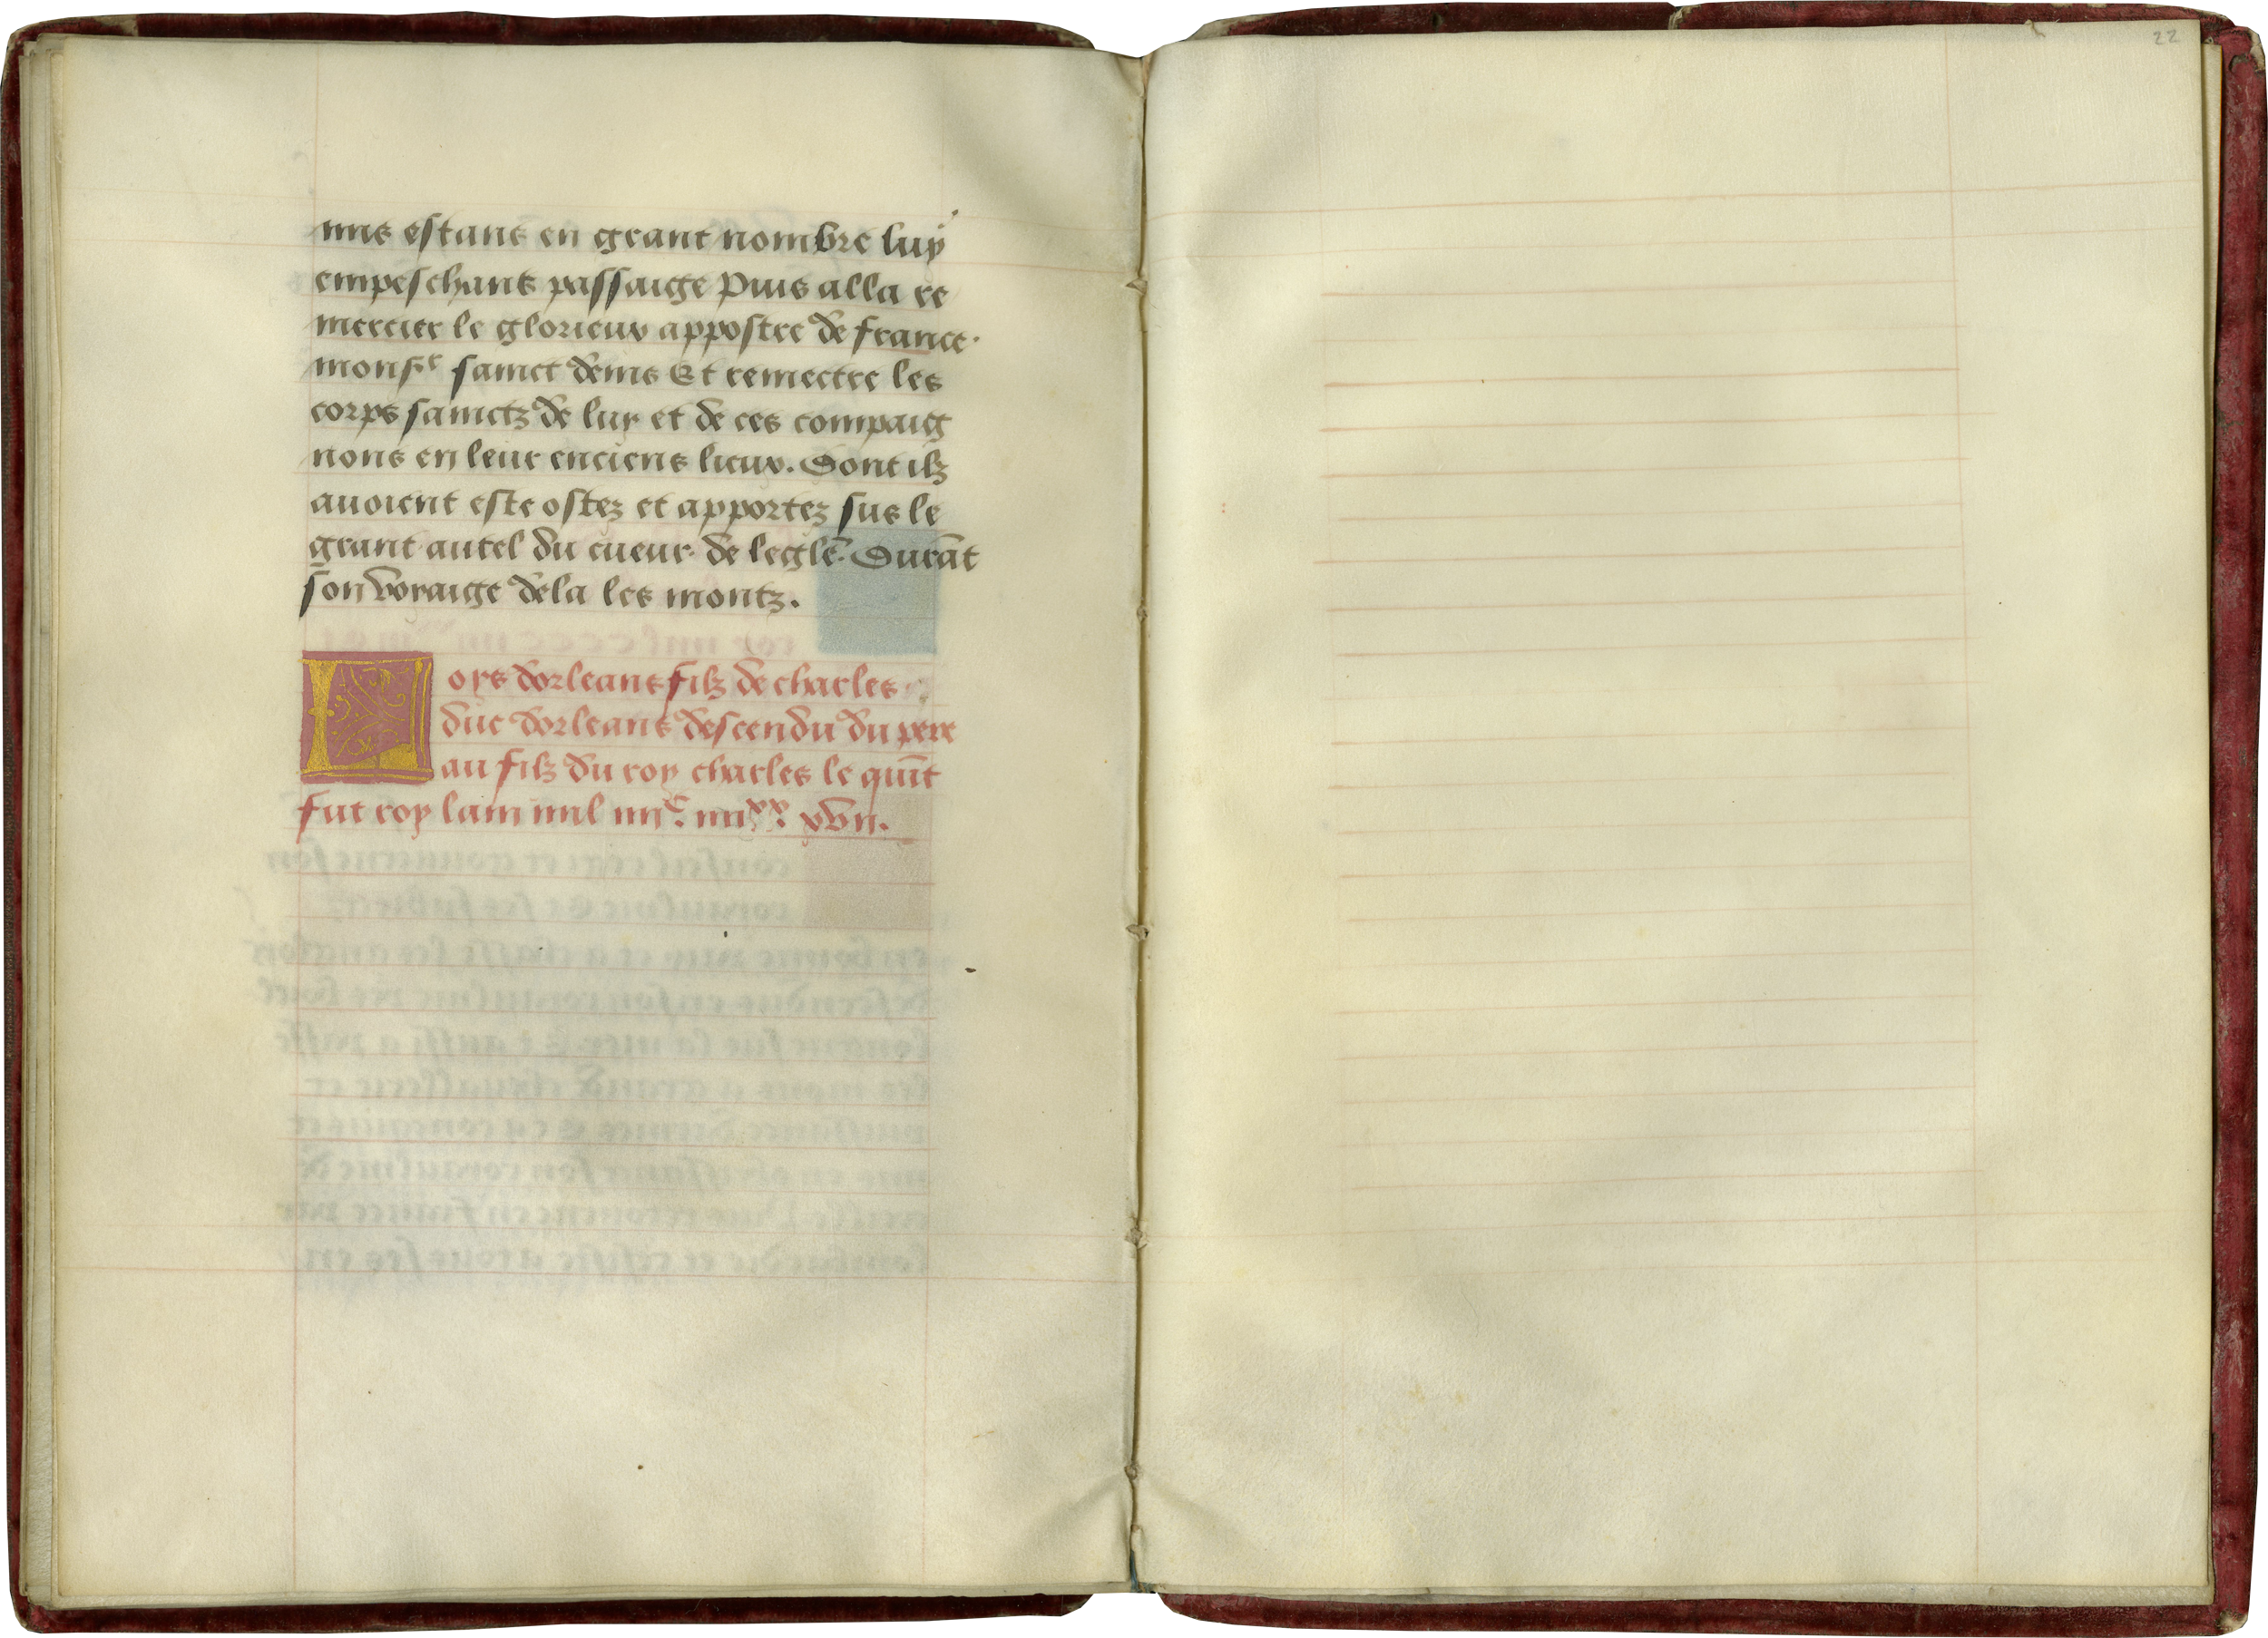 mis estans en grant nombre luy
empeschans passaige Puis alla re
mercier le glorieux appostre de france.
monsr sainct denis Et remectre les
corps sainctz de luy et de ces compaig
nons en leur enciens lieux. Dont ilz
auoient este ostez et apportez sus le
grant autel du cueur de leglē. Durāt
son voyaige dela les montz.
Loys dorleans filz de charles
duc dorleans descendu du pere
au filz du roy charles le quīt
fut roy lam mil iiijc. iiijxx. xvij.
22